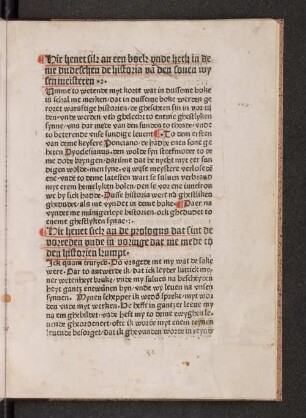 Hir heuet sik an een boek vnde heth in de
me dudeschen de historia vā den souen wy
sen mesteren
Umme to wetende myt korte wat in dusseme boke
is schal me merken, dat in dusseme boke werden ge
roret warafftige historien, de gheschreen sin in vorty
den
synne, vns dar mede van den sunden to theende, vnde
to beterende vnse sundige leuent To dem ersten
van deme keysere Ponciano, de hadde enen sone ge
heten Dyoclecianus, den wolde syn steefmoder to de
me dode bryngen, darume dat he nycht myt eer sun
digen wolde, men syne, eq wyse meystere vorlosede
en, vnde to deme latesten wart se suluen vorbrand
myt erem hemelyken bolen, den se vor ene iuncfrow en
by sik hadde, Dusse historia wert vā gheistliken
gheduder, als me vyndet in deme boke. Daer na
vyndet me mannigerleye historien, ock gheduder to
eneme gheystlyken synne
Hir heuet sick an de prologus dat sint de
vorreden vnde in voringe dar me mede to
den historien kumpt.
Ick quam trurych, Do vragede met my wat de sake
were. Dar to antworde ik, dat ick leyder luttick mo
ner wetenheyt bruke, vnde my suluen na beschyuen
heyt gantz entwanen byn, vnde wy leuen na vnsen
synnen. Mynen schepper ik wedd sproke, myt wor
den vnde myt wercken. De heft my gantz leue my
na em ghebildet, vnde heft my to deme ewyghen le
uende gheordenert, ofte ik worde myt enem reynen
leuende besorget, dat ik ghevunden worde in reynen